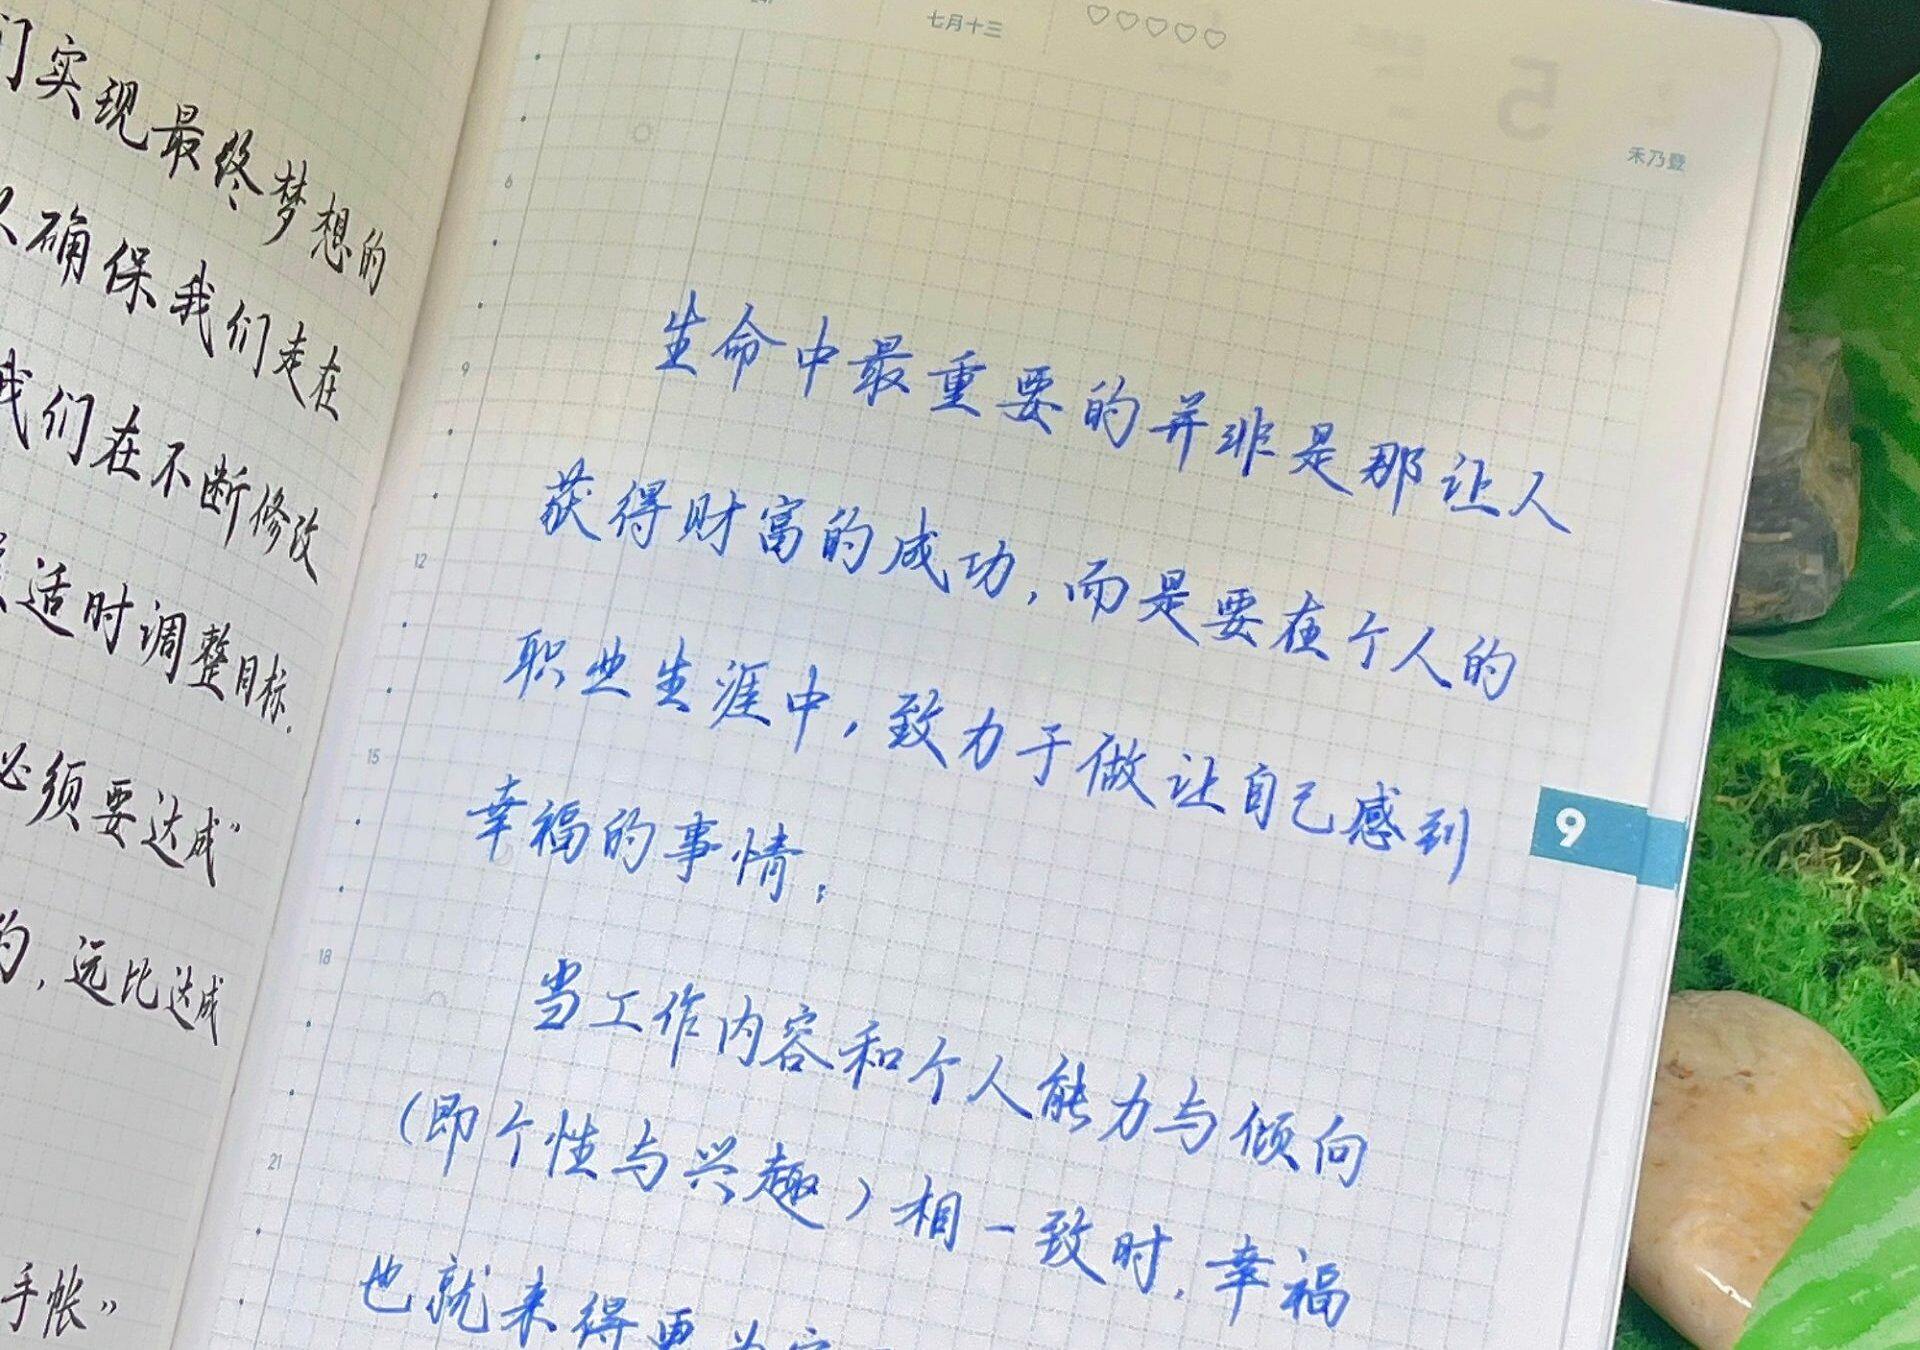 们实现最终梦想的
确保我们走在
我们在不断修改
适时调整目标.
必须要达成”
的,远比达成
手帐”
七月十三
5
禾乃登
6
9
12
15
18
21
生命中最重要的并非是那让人
获得财富的成功,而是要在个人的
职业生涯中,致力于做让自己感到
幸福的事情;
当工作内容和个人能力与倾向
(即个性与兴趣)相一致时,幸福
也就来得更为
9